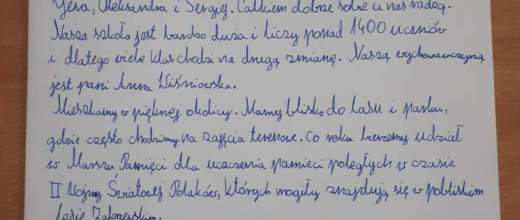 Yeva, Oleksandra i Sergiej. Całkiem dobrze sobie u nas radzą.
Nasza szkoła jest bardzo duża i liczy ponad 1400 uczniów
i dlatego wiele klas chodzi na drugą zmianę. Naszą wychowawczynią
jest pani Anna Wiśniowska.
Mieszkamy w pięknej okolicy. Mamy blisko do lasu i parku,
gdzie często chodzimy na zajęcia terenowe. Co roku bierzemy udział
w Marszu Pamięci dla uczczenia pamięci poległych w czasie
II Wojny Światowej Polaków, których mogiły znajdują się w pobliskim
Lesie